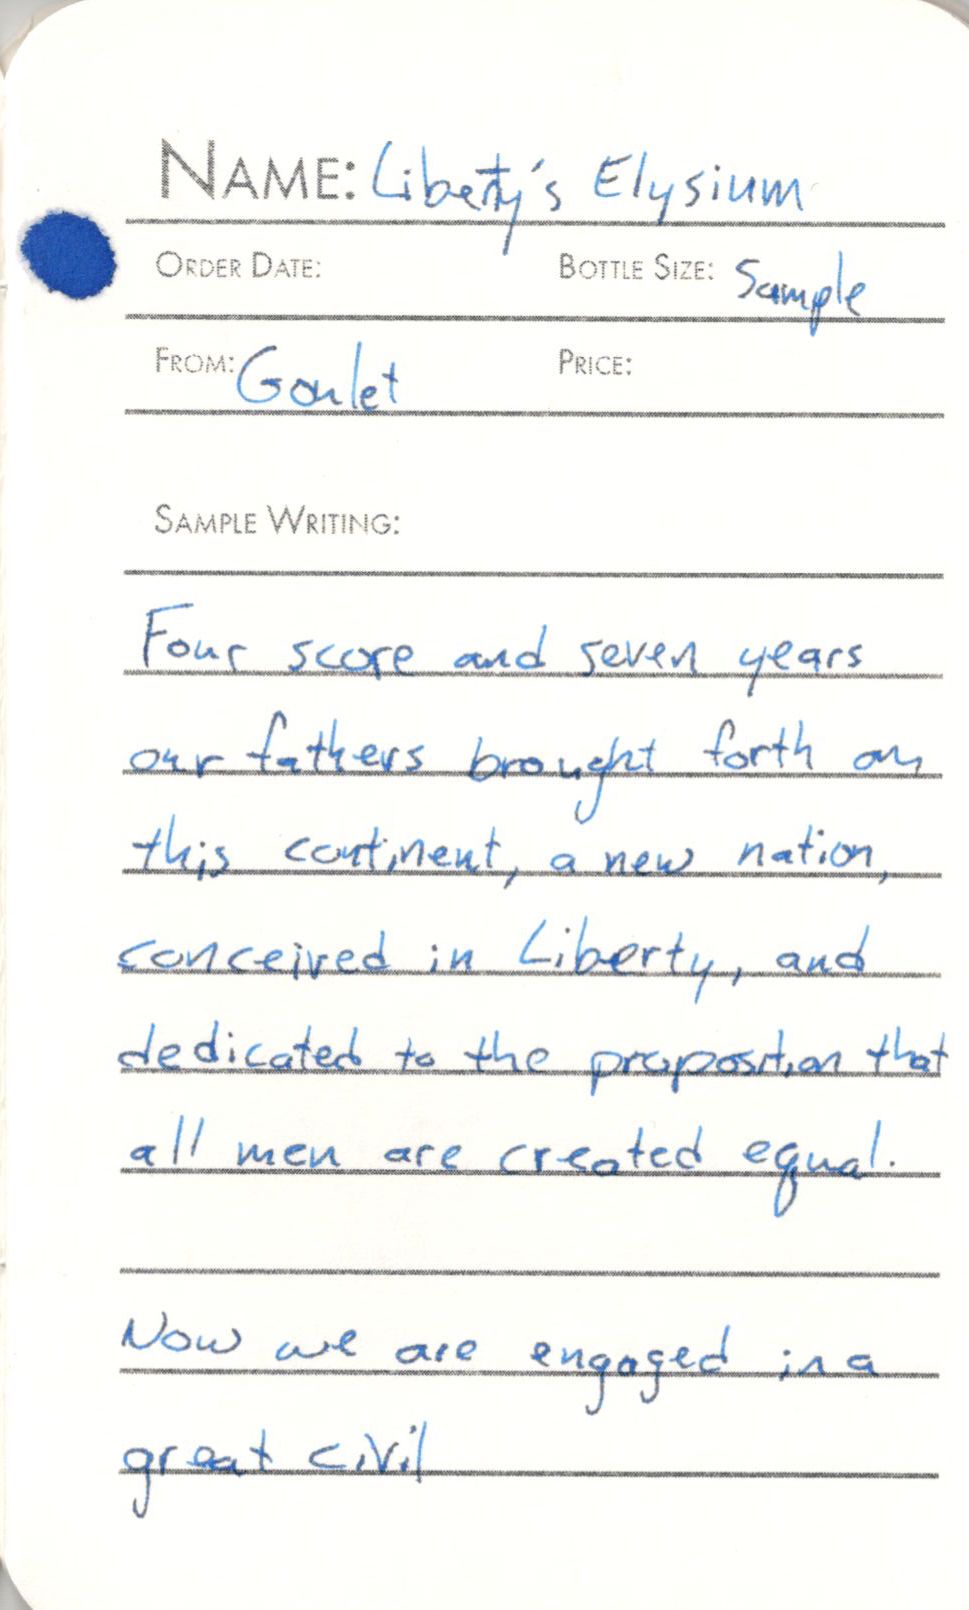 NAME: Liberty's Elysium
ORDER DATE: BOTTLE SIZE: Sample
FROM: Goulet PRICE:
SAMPLE WRITING:
Four score and seven years
our fathers brought forth on
this continent, a new nation,
conceived in Liberty, and
dedicated to the proposition that
all men are created equal.
Now we are engaged in a
great civil